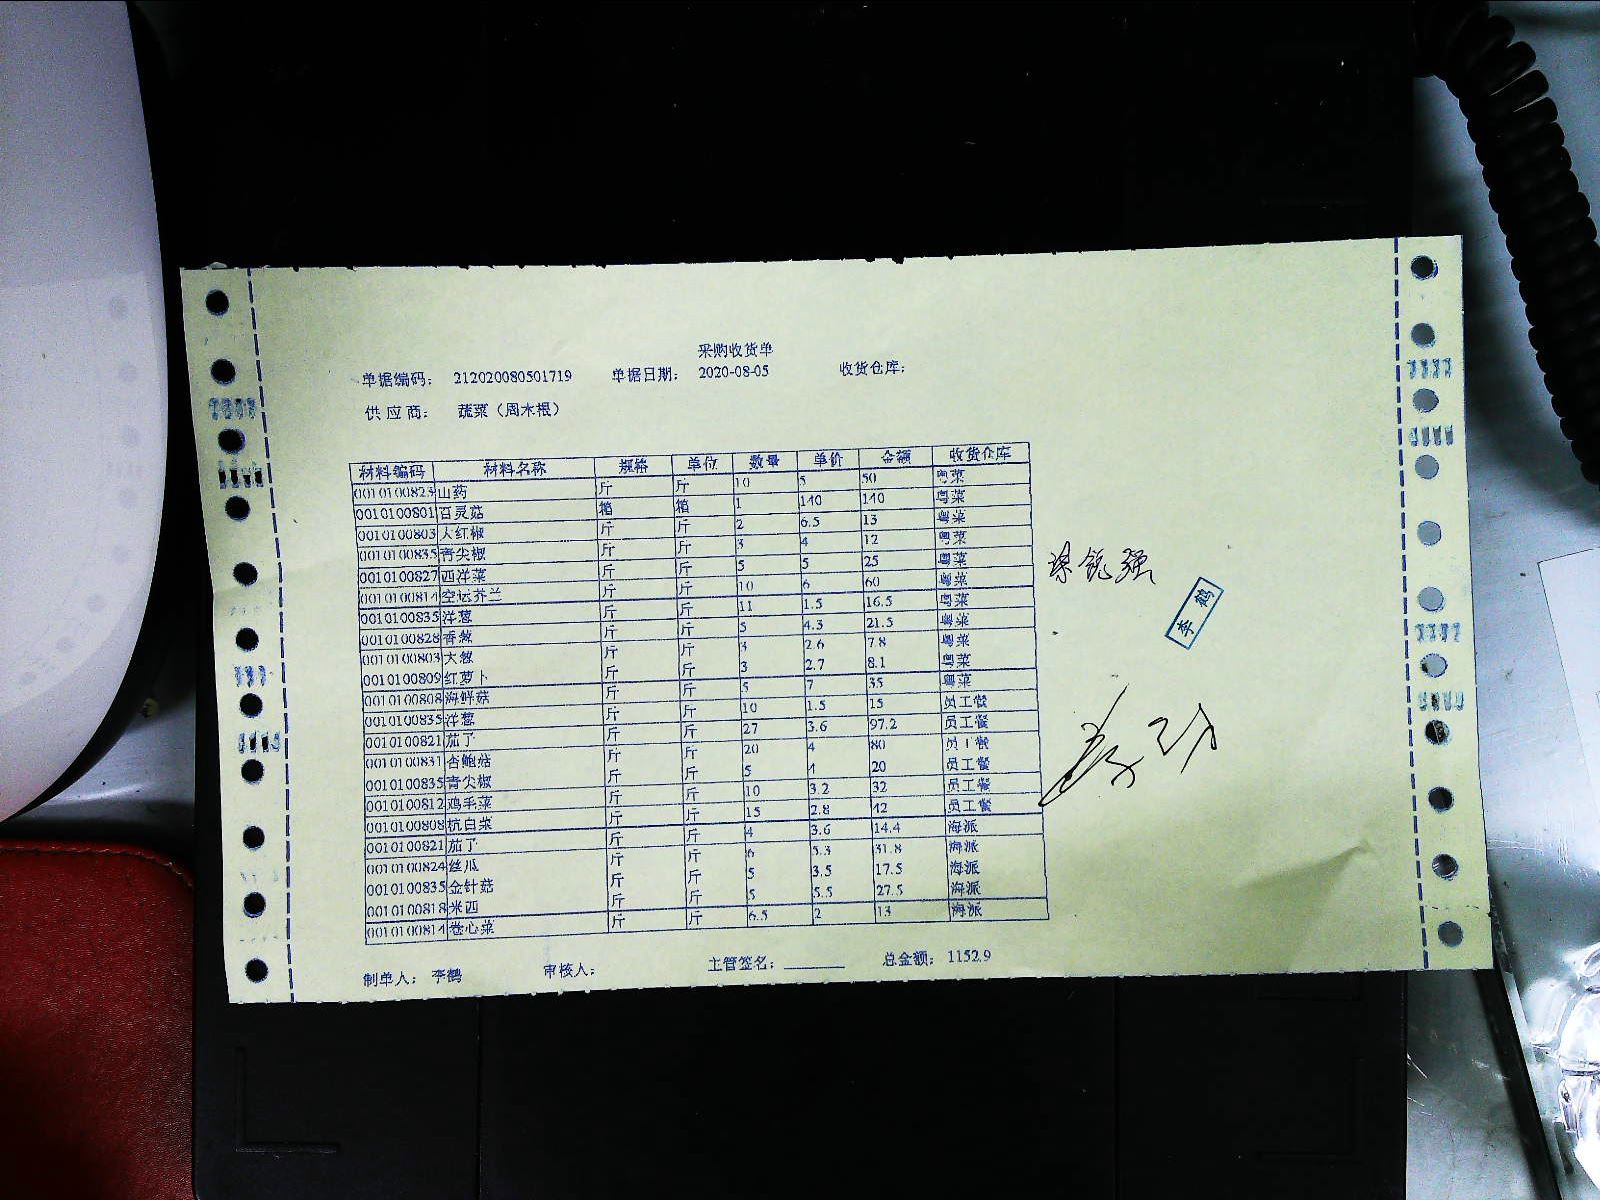 采购收货单
单据编码: 212020080501719 单据日期: 2020-08-05 收货仓库:
供应商: 蔬菜（周木根）
材料编码 材料名称 规格 单位 数量 单价 金额 收货仓库
0010100823 山药 斤 斤 10 5 50 粤菜
0010100801 百灵菇 箱 箱 1 140 140 粤菜
0010100803 大红椒 斤 斤 2 6.5 13 粤菜
0010100835 青尖椒 斤 斤 3 4 12 粤菜
0010100827 西洋菜 斤 斤 5 5 25 粤菜
0010100814 空运芥兰 斤 斤 10 6 60 粤菜
0010100835 洋葱 斤 斤 11 1.5 16.5 粤菜
0010100828 香葱 斤 斤 5 4.3 21.5 粤菜
0010100803 大葱 斤 斤 3 2.6 7.8 粤菜
0010100809 红萝卜 斤 斤 3 2.7 8.1 粤菜
0010100808 海鲜菇 斤 斤 5 7 35 粤菜
0010100835 洋葱 斤 斤 10 1.5 15 员工餐
0010100821 茄子 斤 斤 27 3.6 97.2 员工餐
0010100831 杏鲍菇 斤 斤 20 4 80 员工餐
0010100835 青尖椒 斤 斤 5 4 20 员工餐
0010100812 鸡毛菜 斤 斤 10 3.2 32 员工餐
0010100808 杭白菜 斤 斤 15 2.8 42 员工餐
0010100821 茄子 斤 斤 4 3.6 14.4 海派
0010100824 丝瓜 斤 斤 6 5.3 31.8 海派
0010100835 金针菇 斤 斤 5 3.5 17.5 海派
0010100818 米西 斤 斤 5 5.5 27.5 海派
0010100814 卷心菜 斤 斤 6.5 2 13 海派
制单人: 李鹤 审核人: 主管签名: 总金额: 1152.9
李鹤